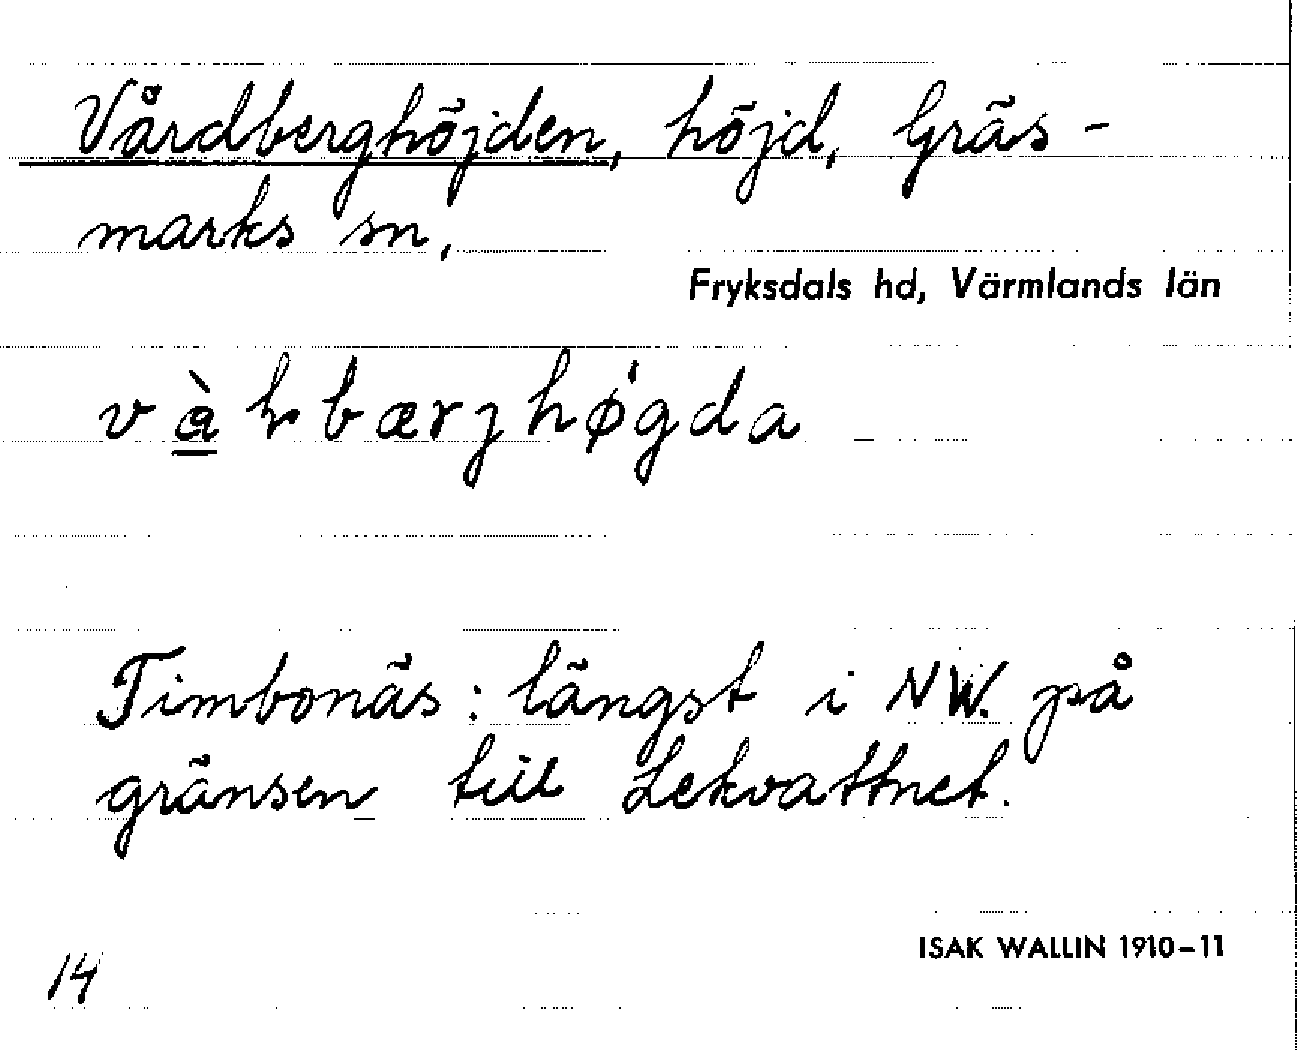 Vårdberghöjden, höjd, Gräs-
marks sn,
Fryksdals hd, Värmlands län
Timbonäs: längst i NW. på
gränsen till Lekvattnet.
ISAK WALLIN 1910-11
14